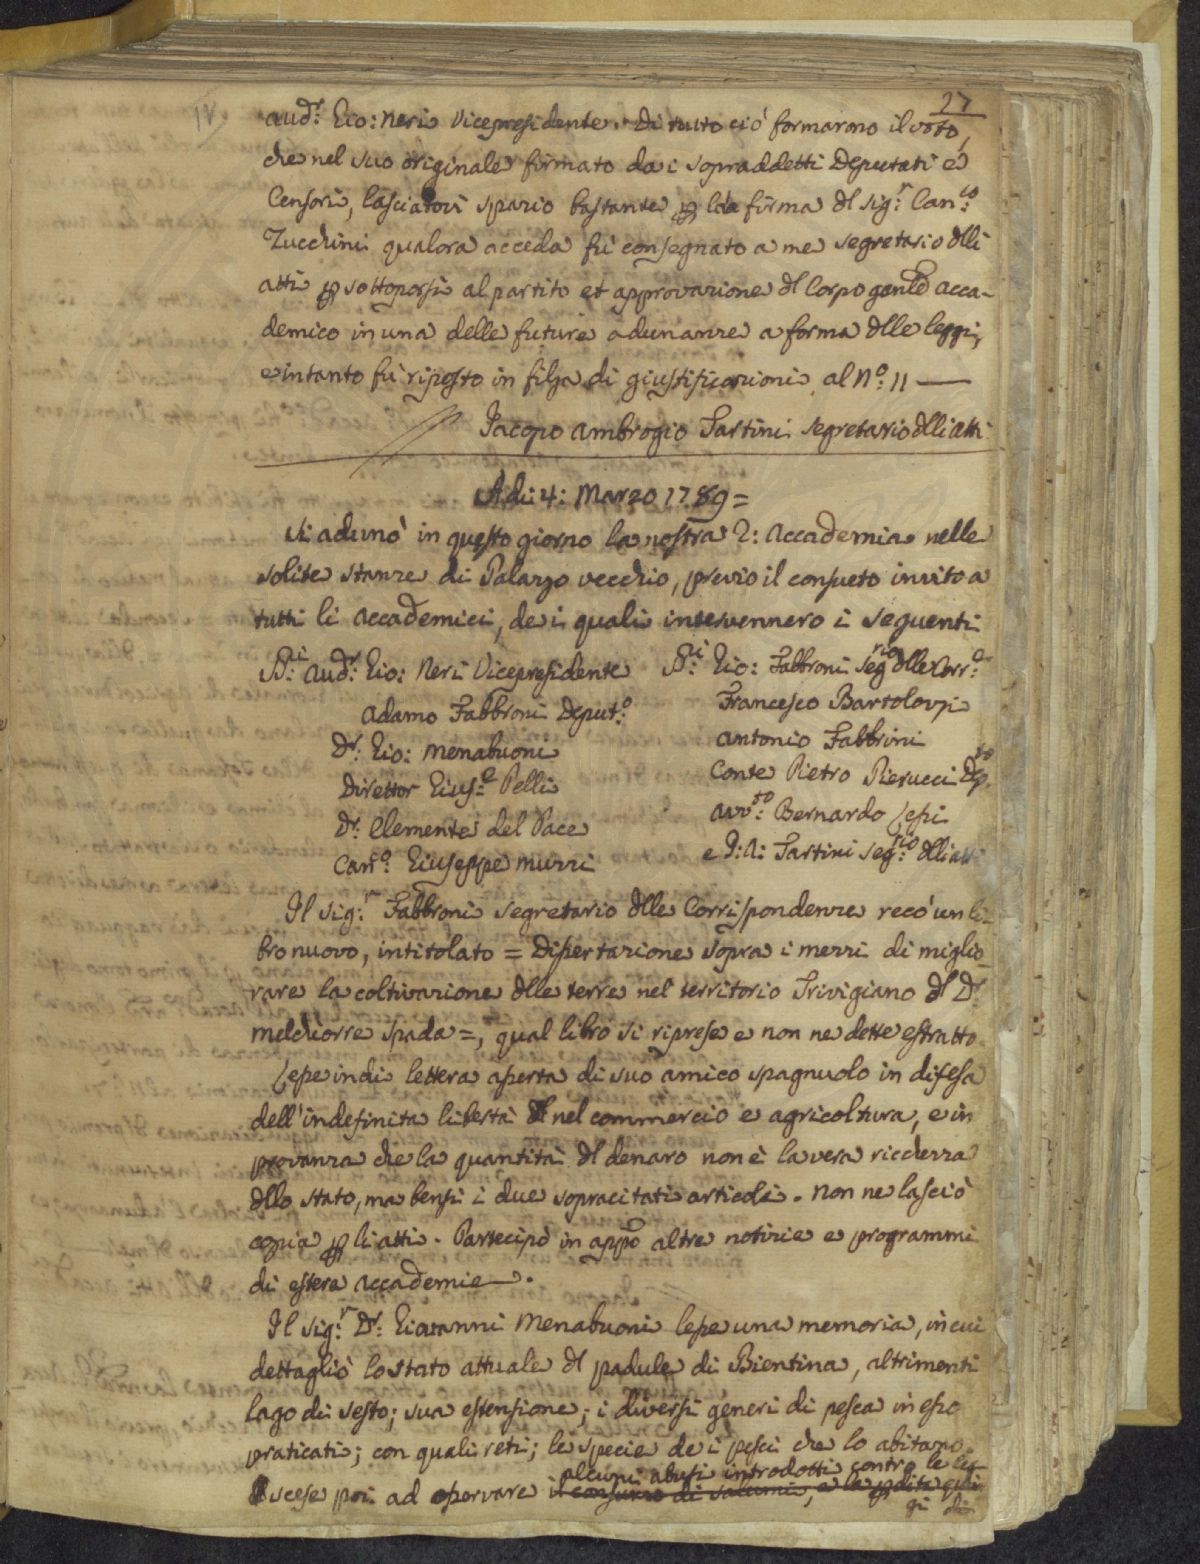 27
Aud.r Gio: Neri Vicepresidente. Di tutto ciò formarono il voto,
che nel suo originale firmato da i sopraddetti Deputati e
Censori, lasciatovi spazio bastante p la firma dl Sig.r Can.co
Zucchini qualora acceda fu consegnato a me Segretario dlli
atti p sottoporsi al partito et approvazione dl Corpo genle acca-
demico in una delle future adunanze a forma dlle leggi,
e intanto fu riposto in filza di giustificazioni al N.o 11 —
Jacopo Ambrogio Tartini Segretario dlli atti
A di 4: Marzo 1789 =
Si adunò in questo giorno la nostra R: Accademia nelle
solite stanze di Palazzo vecchio, previo il consueto invito a
tutti li Accademici, de i quali intervennero i seguenti
SS.ri Aud.r Gio: Neri Vicepresidente
Adamo Fabbroni Deput.o
D.r Gio: Menabuoni
Direttor Gius.e Pelli
D.r Clemente del Pace
Can.o Giuseppe Muzzi
SS.ri Gio: Fabbroni Seg.rio dlle Corr.e
Francesco Bartolozzi
Antonio Fabbrini
Conte Pietro Pierucci Dep.to
Avv.to Bernardo Lessi
e J: A: Tartini Seg.rio dlli atti
Il Sig.r Fabbroni Segretario dlle Corrispondenze recò un li-
bro nuovo, intitolato = Dissertazione sopra i mezzi di miglio-
rare la coltivazione dlle terre nel territorio Trivigiano dl D.r
Melchiorre Spada =, qual libro si riprese e non ne dette estratto.
Lesse indi lettera aperta di suo amico spagnuolo in difesa
dell'indefinita libertà nel commercio e agricoltura, e in
provanza che la quantità dl denaro non è la vera ricchezza
dllo stato, ma bensì i due sopracitati articoli. Non ne lasciò
copia p li atti. Partecipò in appo altre notizie e programmi
di estere Accademie.
Il Sig.r D.r Giovanni Menabuoni lesse una memoria, in cui
dettagliò lo stato attuale dl padule di Bientina, altrimenti
lago di Sesto; sua estensione; i diversi generi di pesca in esso
praticati; con quali reti; le specie de i pesci che lo abitano.
alcuni abusi introdotti contro le leg-
Scese poi ad osservare il consumo di salumi, e la pdita
gi di